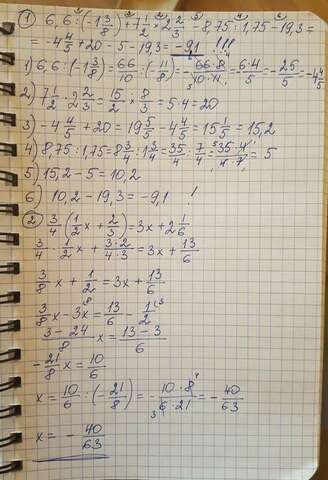 ① 6,6 : (-1 3/8) + 7 1/2 × 2 2/3 - 8,75 : 1,75 - 19,3 =
= -4 4/5 + 20 - 5 - 19,3 = -9,1 !!!
1) 6,6 : (-1 3/8) = 66/10 : (11/8) = - 66·8/10·11 = 6·4/5 = - 25/5 = -4 4/5
2) 7 1/2 · 2 2/3 = 15/2 × 8/3 = 5·4 = 20
3) -4 4/5 + 20 = 19 5/5 - 4 4/5 = 15 1/5 = 15,2
4) 8,75 : 1,75 = 8 3/4 : 1 3/4 = 35/4 : 7/4 = 35·4/4·7 = 5
5) 15,2 - 5 = 10,2
6) 10,2 - 19,3 = -9,1 !
② 3/4 (1/2 x + 2/5) = 3x + 2 1/6
3/4 · 1/2 x + 3·2/4·3 = 3x + 13/6
3/8 x + 1/2 = 3x + 13/6
3/8 x - 3x = 13/6 - 1/2
3-24/8 x = 13-3/6
- 21/8 x = 10/6
x = 10/6 : (- 21/8) = - 10·8/6·21 = - 40/63
x = - 40/63